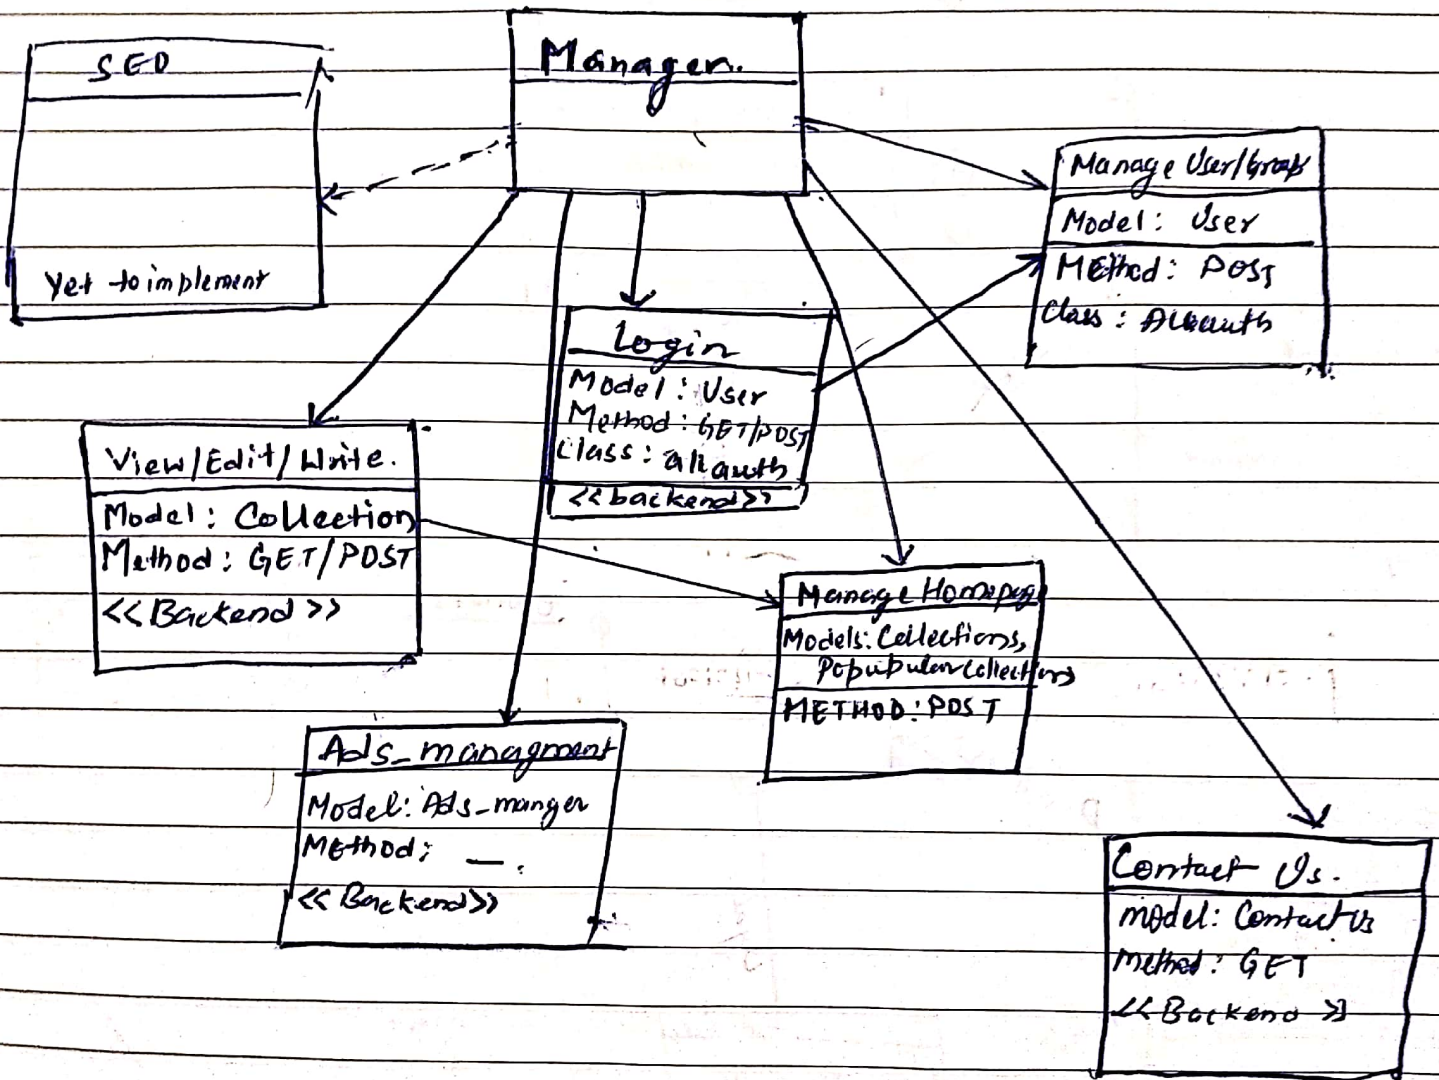 Manager.
SEO
Yet to implement
Manage User/Group
Model: User
METhod: POST
Class: Allauth
Login
Model: User
Method: GET/POST
Class: allauth
<<backend>>
View/Edit/Write.
Model: Collection
Method: GET/POST
<<Backend>>
Manage Homepage
Models: Collections,
Popupular Collections
METHOD: POST
Ads_managment
Model: Ads_manger
MEthod: __.
<<Backend>>
Contact Us.
model: Contact Us
Method: GET
<<Backend>>